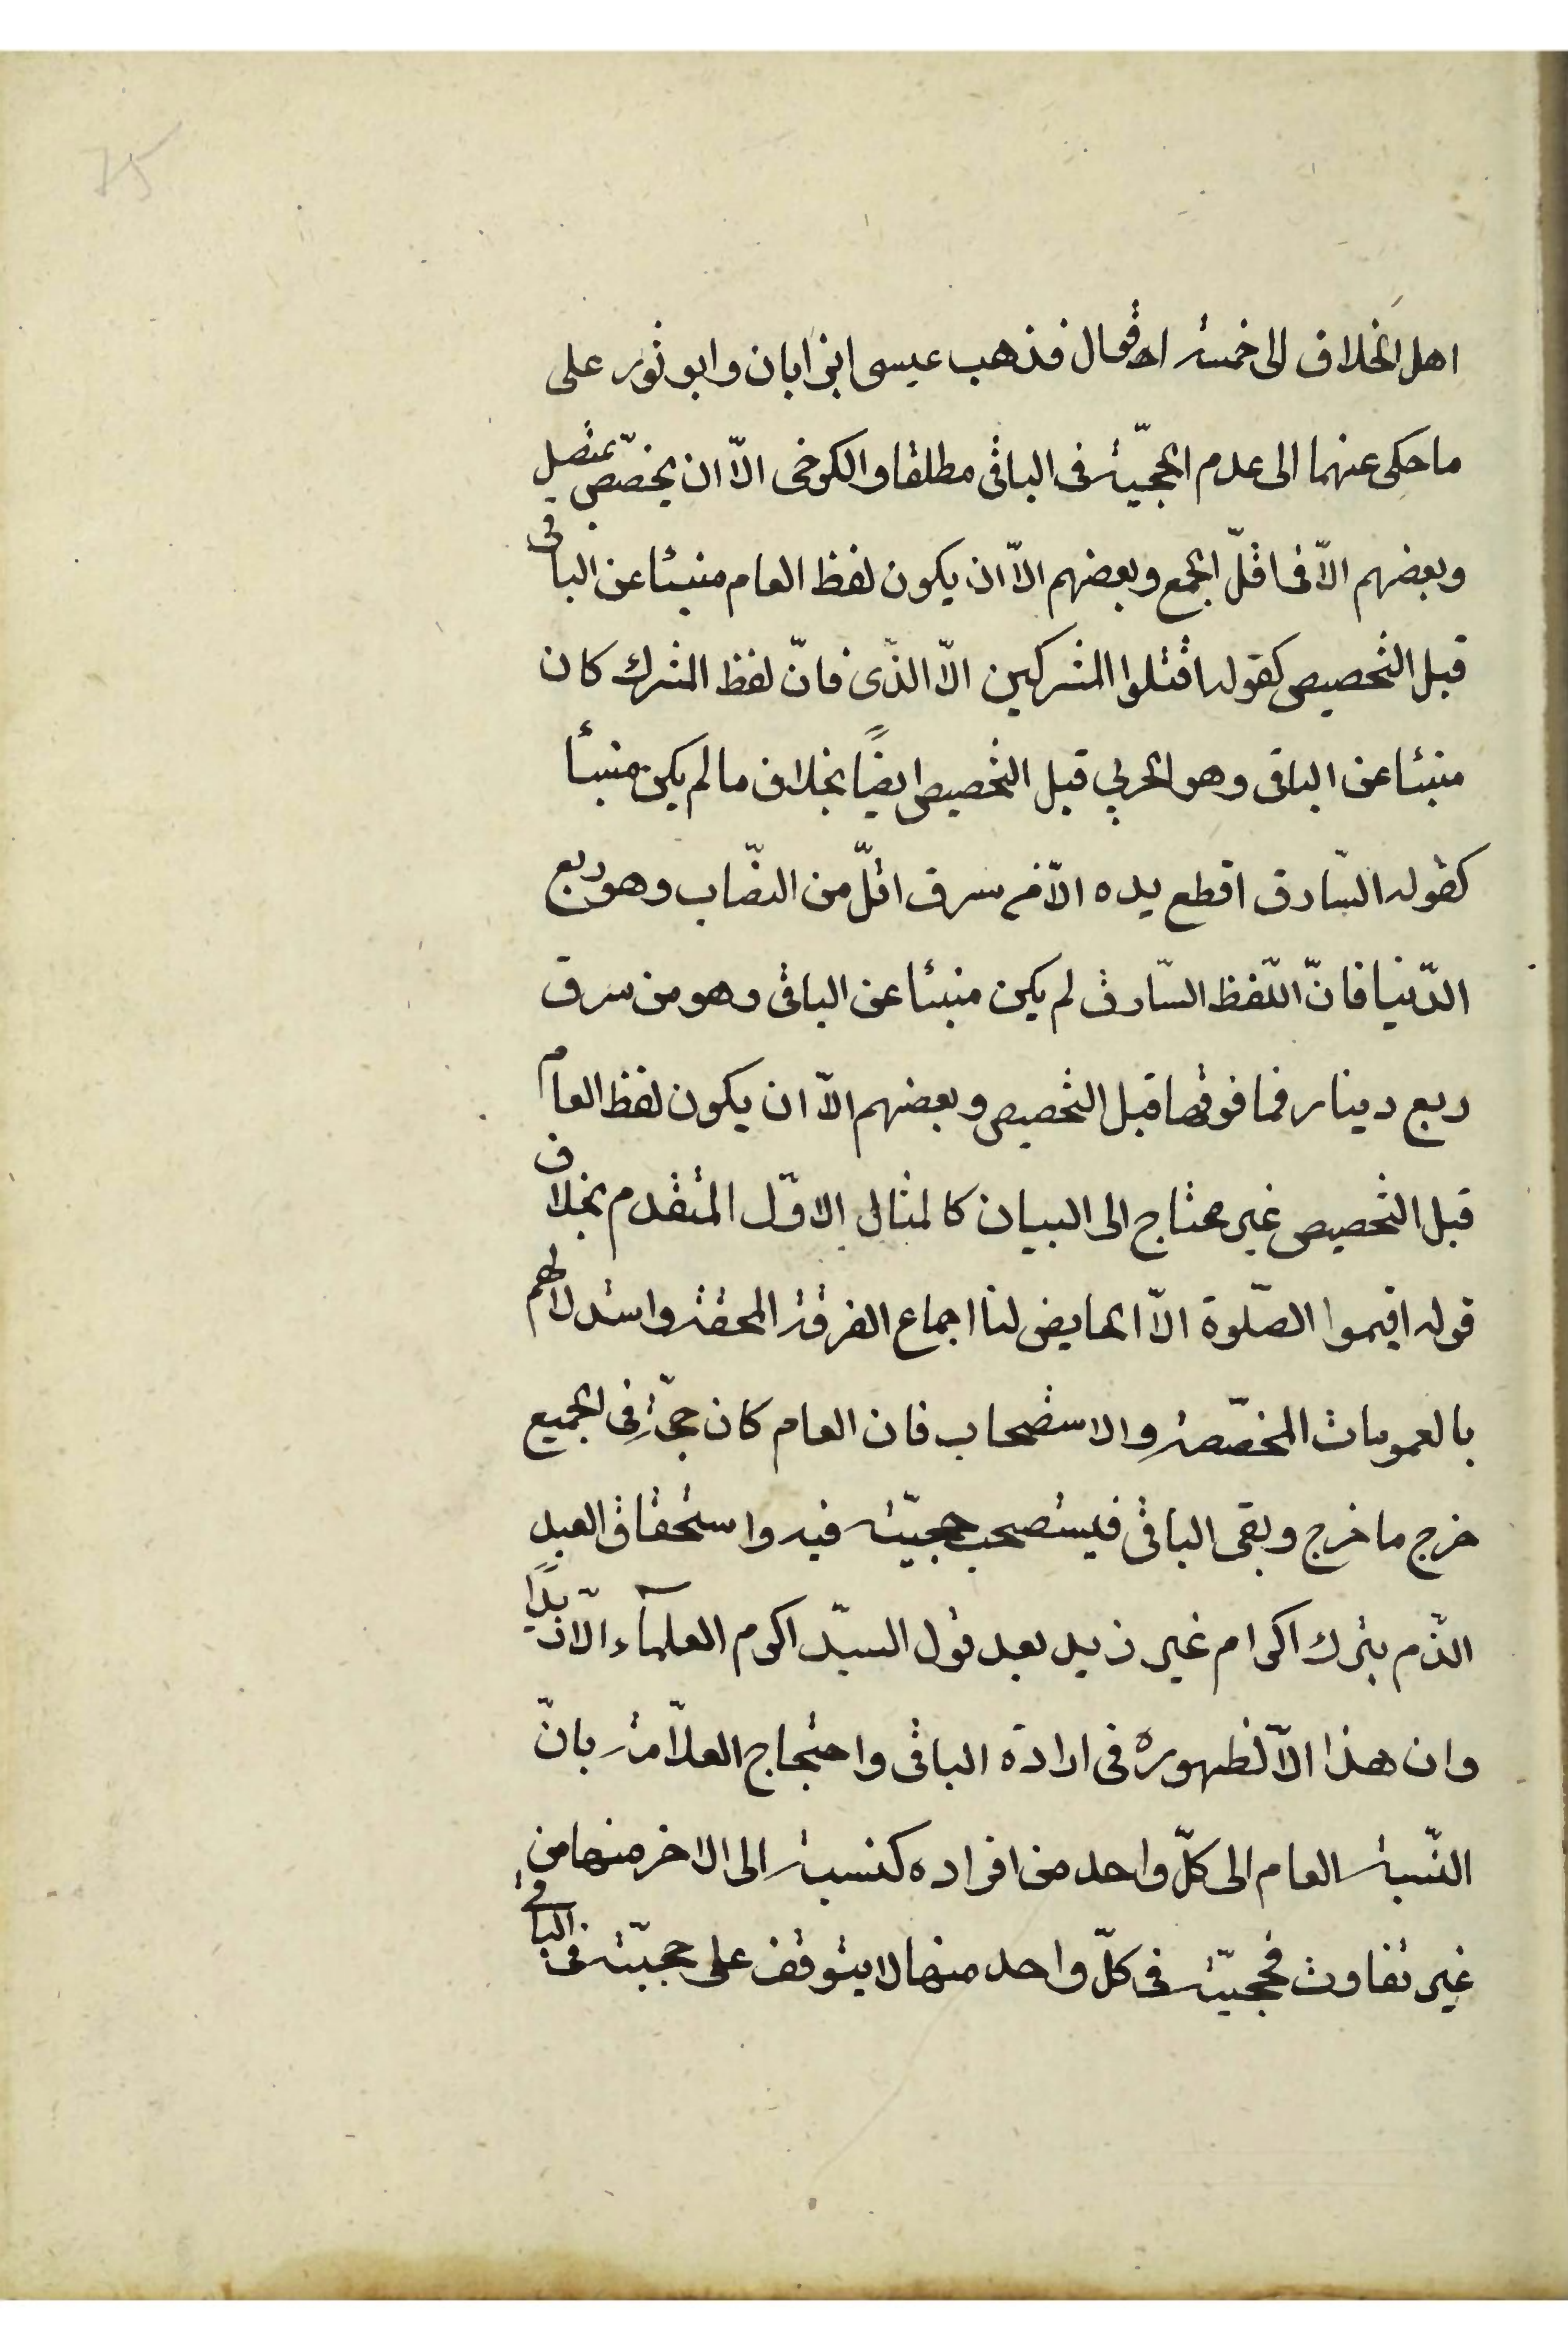 75
اهل الخلاف الى خمسة اقوال فذهب عيسى ابن ابان وابو ثور على
ما حكى عنهما الى عدم الحجيّة فى الباقى مطلقا والكرخى الّا ان يخصّص بمتصل
وبعضهم الّا فى اقلّ الجمع وبعضهم الّا ان يكون لفظ العام منبئا عن الباقى
قبل التخصيص كقوله اقتلوا المشركين الّا الذّى فانّ لفظ المشرك كان
منبئا عن الباقى وهو الحربي قبل التخصيص ايضًا بخلاف ما لم يكن منبئا
كقوله السّارق اقطع يده الّا من سرق اقلّ من النصّاب وهو ربع
الدّنيا فانّ اللّفظ السّارق لم يكن منبئا عن الباقى وهو من سرق
ربع دينار فما فوقها قبل التخصيص وبعضهم الّا ان يكون لفظ العام
قبل التخصيص غير محتاج الى البيان كالمثال الاوّل المتقدم بخلاف
قوله اقيموا الصّلوة الّا الحايض لنا اجماع الفرقة المحقة واستدلالهم
بالعمومات المخصّصة والاستصحاب فان العام كان حجّة فى الجميع
خرج ما خرج وبقى الباقى فيستصحب حجيّته فيه واستحقاق العبد
الذّم بترك اكرام غير زيد بعد قول السيّد اكرم العلمآء الّا زيدًا
وان هذا الّا لظهوره فى ارادة الباقى واحتجاج العلّامة بانّ
النّسبة العام الى كلّ واحد من افراده كنسبة الى الاخر منها من
غير تفاوت فحجيّته فى كلّ واحد منها لا يتوقف على حجيّته فى الباقى